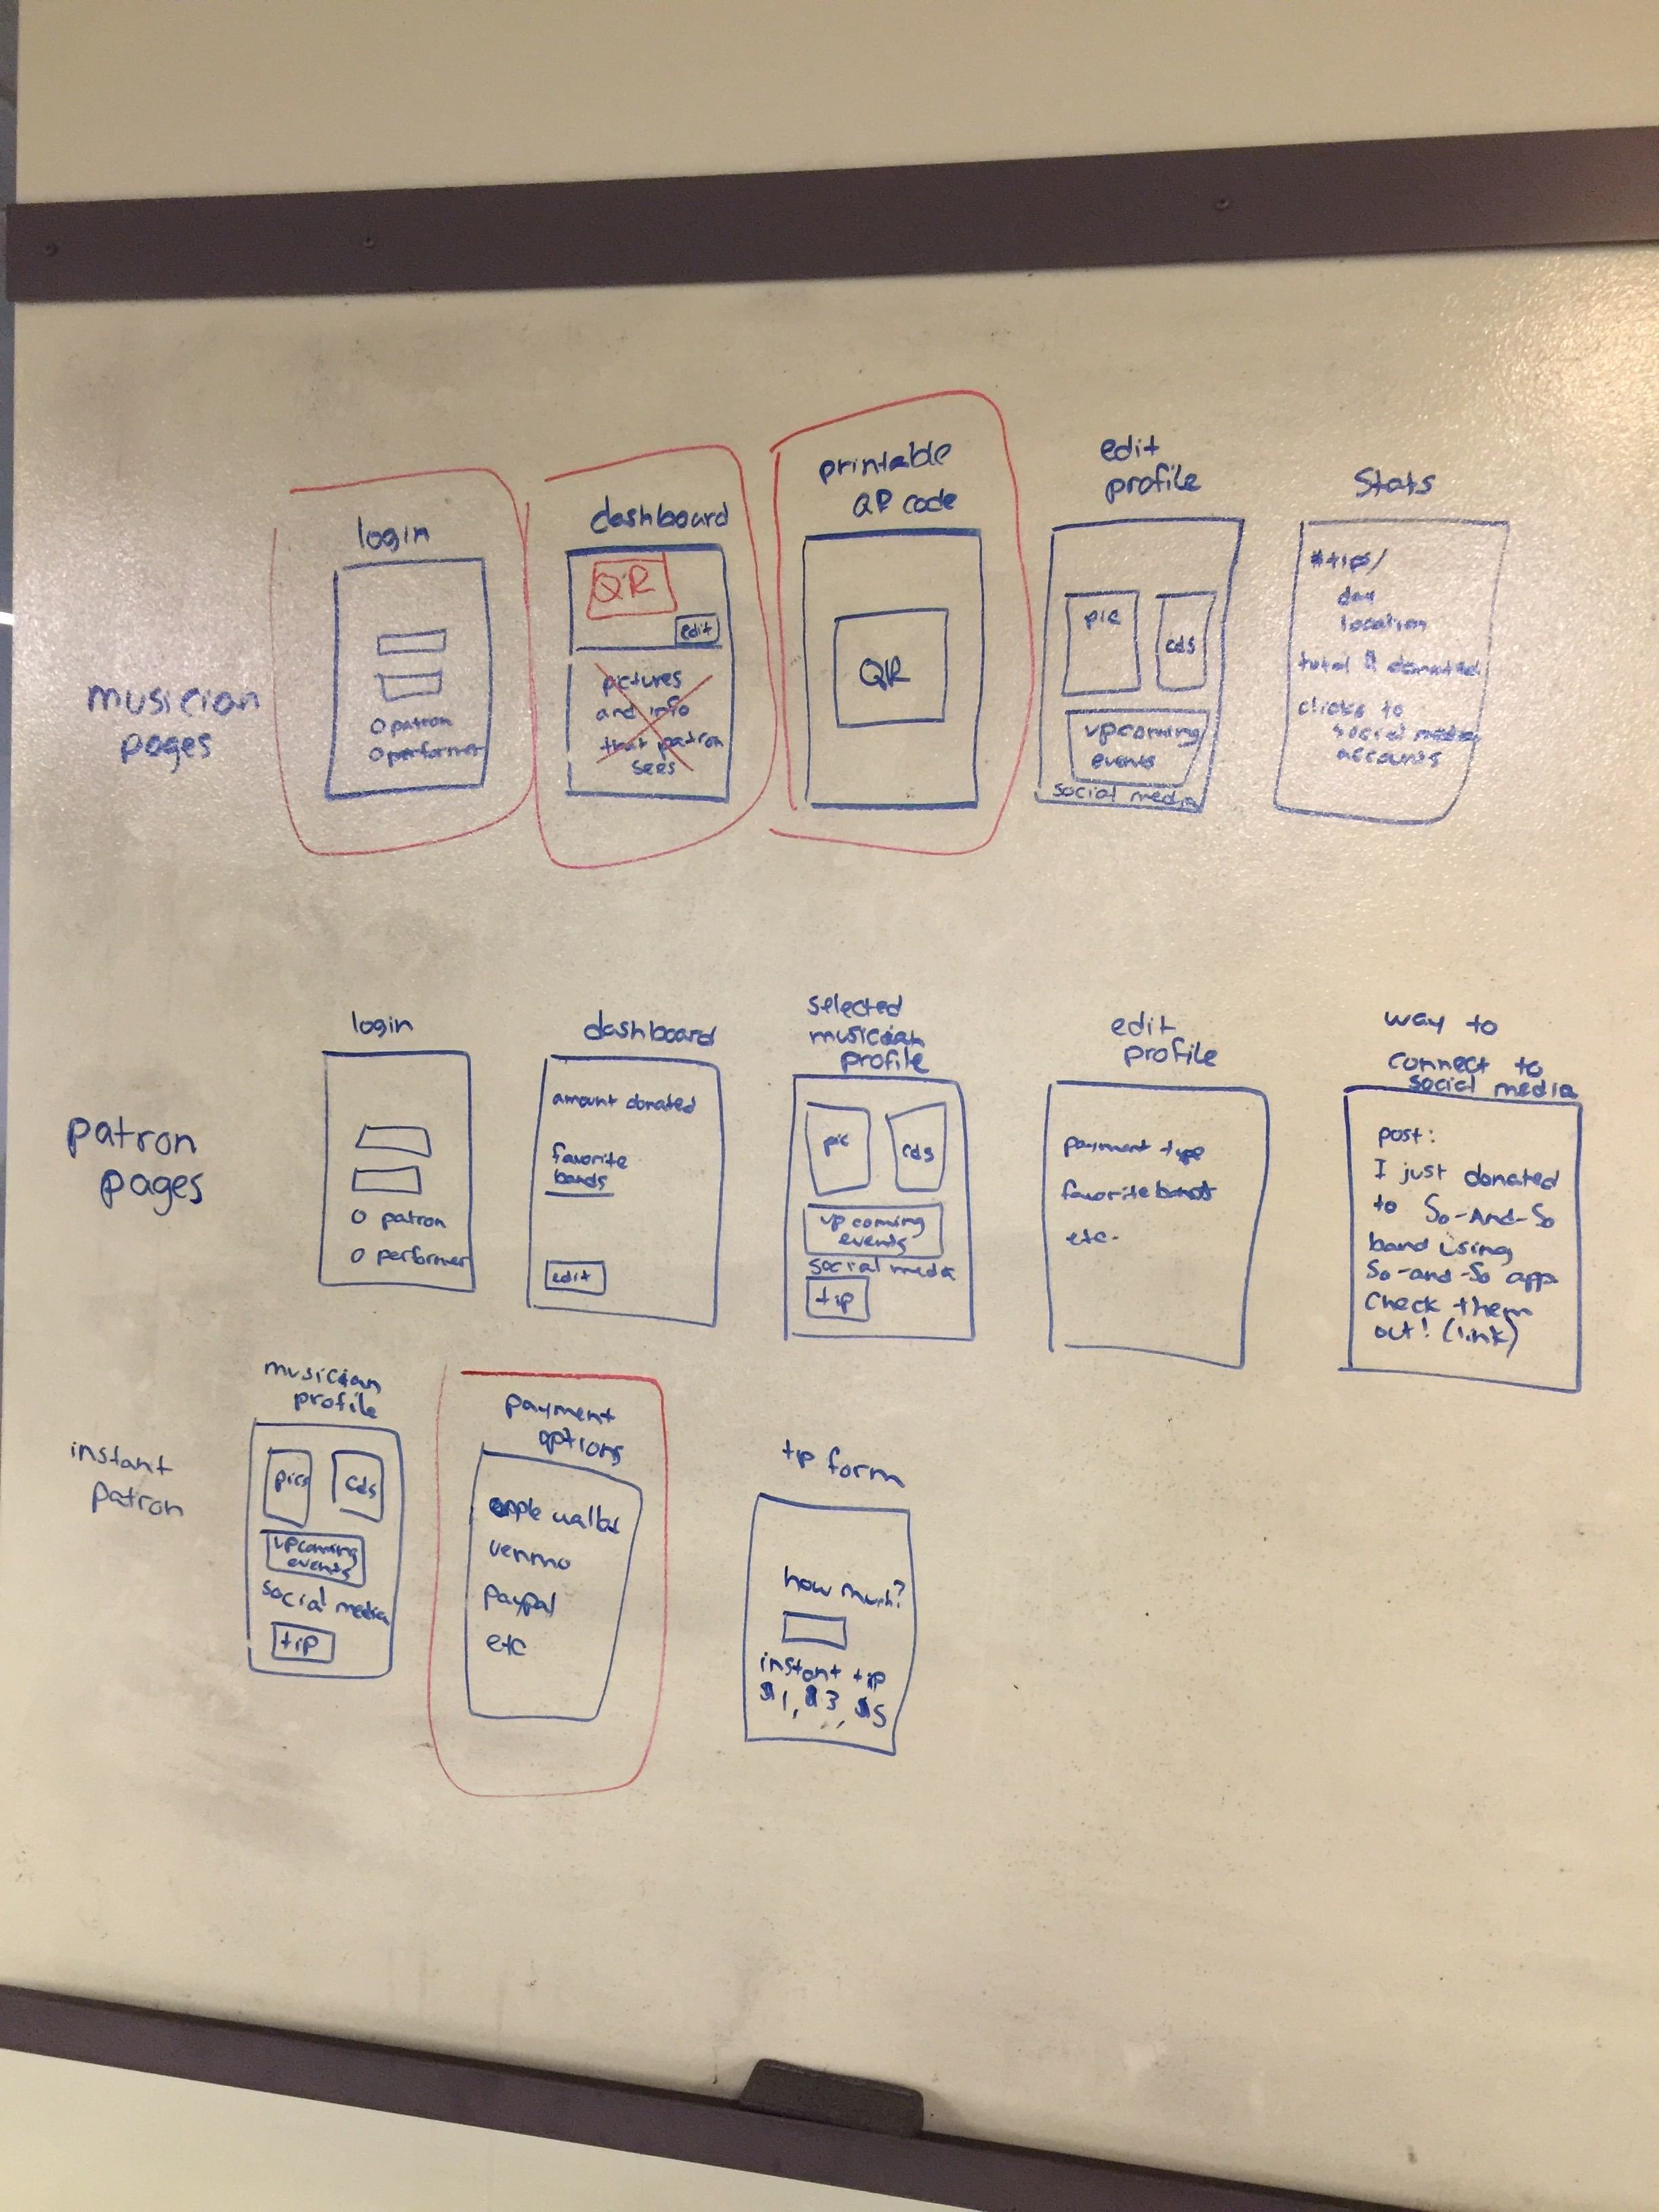 musician
pages
login
O patron
O performer
dashboard
QR
edit
pictures
and info
that patron
sees
printable
QR code
QR
edit
profile
pic
cds
upcoming
events
social media
Stats
#tips/
day
location
total $ donated
clicks to
social media
accounts
patron
pages
login
O patron
O performer
dashboard
amount donated
favorite
bands
edit
selected
musician
profile
pic
cds
upcoming
events
social media
tip
edit
profile
payment type
favorite bands
etc.
way to
connect to
social media
post:
I just donated
to So-And-So
band using
So-and-So app
Check them
out! (link)
instant
patron
musician
profile
pics
cds
upcoming
events
social media
tip
payment
options
apple wallet
venmo
paypal
etc
tip form
how much?
instant tip
$1, $3, $5